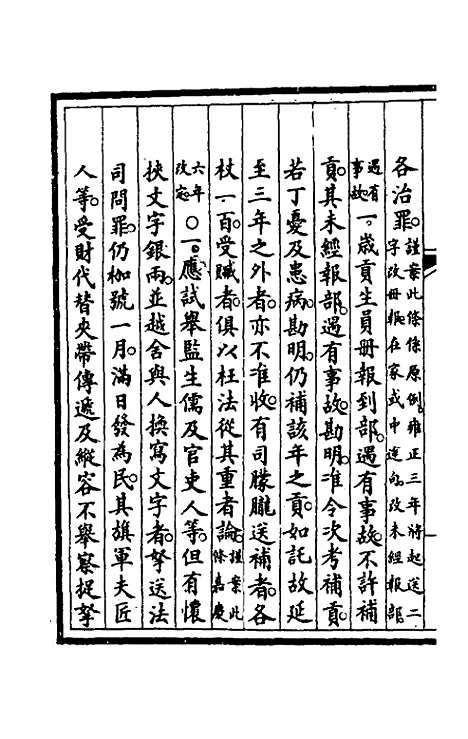 各治罪。謹案此條係原例。雍正三年將起送二
字改冊報。在家或中途向。改未經報部
遇有事故。一。歲貢生員冊報到部。遇有事故。不許補
貢。其未經報部。遇有事故。勘明。准令次考補貢。
若丁憂及患病。勘明。仍補該年之貢。如託故延
至三年之外者。亦不准收。有司朦朧送補者。各
杖一百。受贓者。俱以枉法從其重者論。謹案此條嘉慶
六年改定。○一。應試舉監生儒及官吏人等。但有懷
挾文字銀兩。並越舍與人換寫文字者。拏送法
司問罪。仍枷號一月。滿日發為民。其旗軍夫匠
人等。受財代替夾帶傳遞及縱容不舉察捉拏